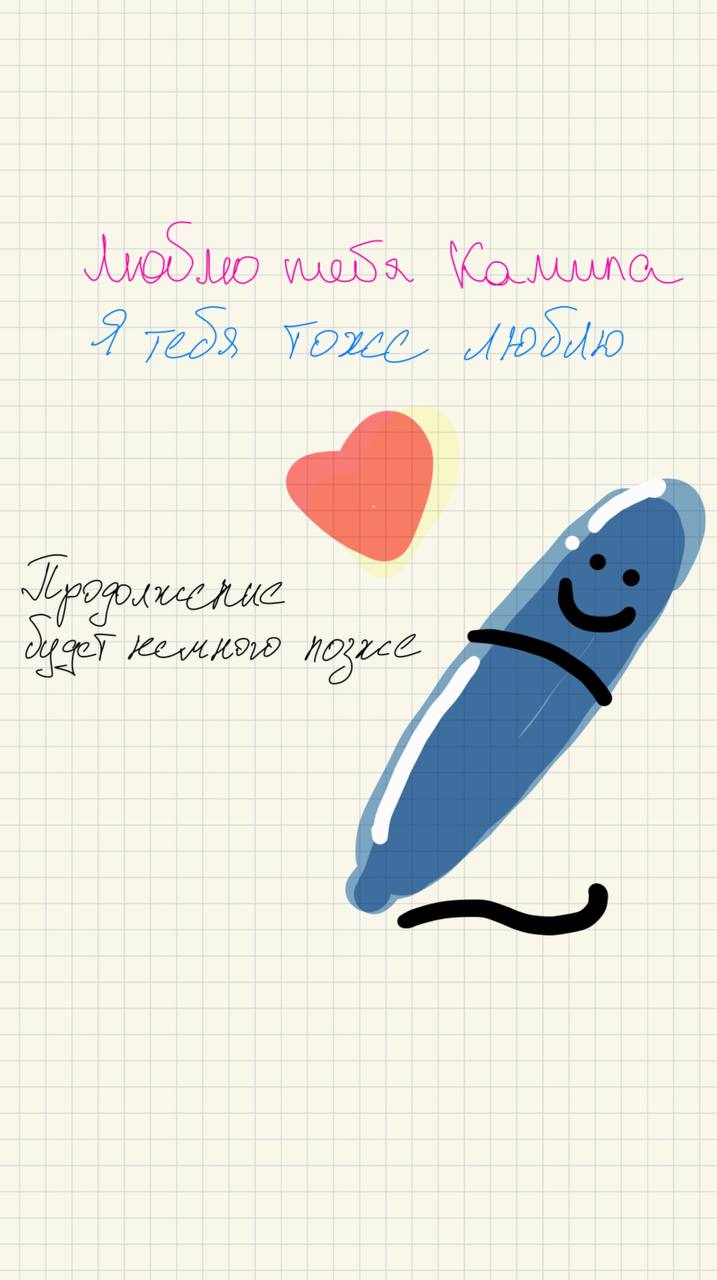 Люблю тебя Камила
Я тебя тоже люблю
Продолжение
будет немного позже